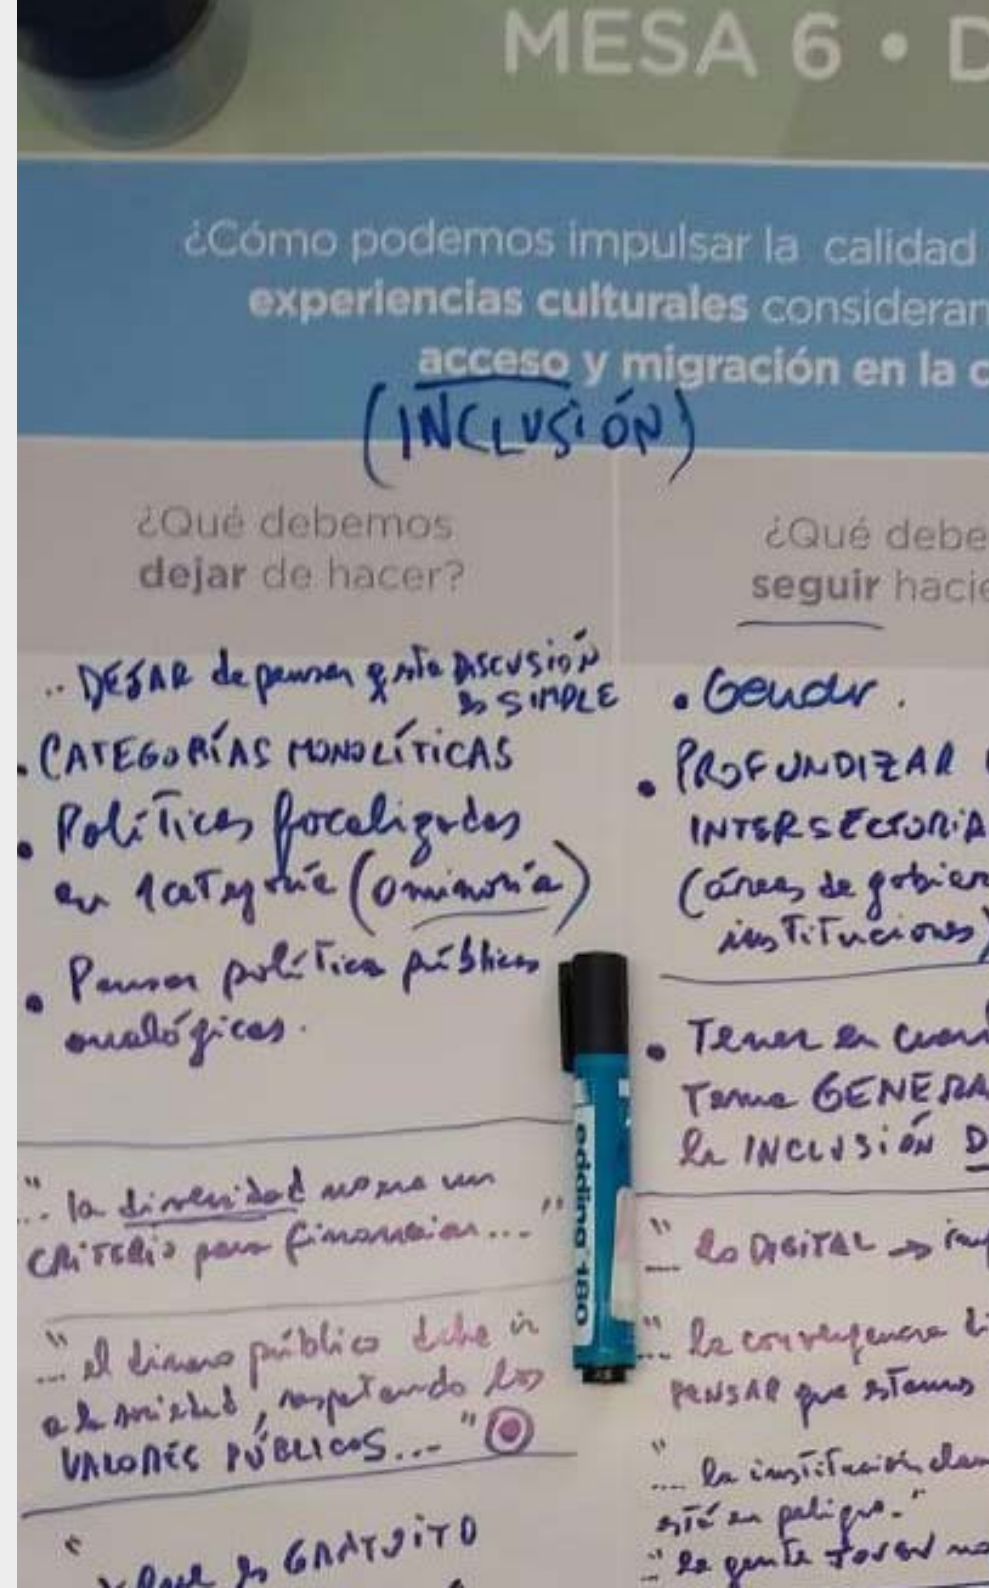 MESA 6 • D
¿Cómo podemos impulsar la calidad
experiencias culturales consideran
acceso y migración en la c
(INCLUSIÓN)
¿Qué debemos
dejar de hacer?
.. DEJAR de pensar q esta DISCUSIÓN
es SIMPLE
• CATEGORÍAS MONOLÍTICAS
• Políticas focalizadas
en 1 categoría (o minoría)
• Pensar política públicas
analógicas.
"... la diversidad no sea un
CRITERIO para financiar..."
"... el dinero público debe ir
a la sociedad, respetando los
VALORES PÚBLICOS..."
"
que es GRATUITO
¿Qué debe
seguir hacie
• Gender.
• PROFUNDIZAR
INTERSECTORIA
(áreas de gobier
instituciones)
• Tener en cuen
Tema GENERA
la INCLUSIÓN D
"... lo DIGITAL →
"... la convergencia di
PENSAR que estamos
"... la institución
está en peligro."
"... la gente joven no
edding 180